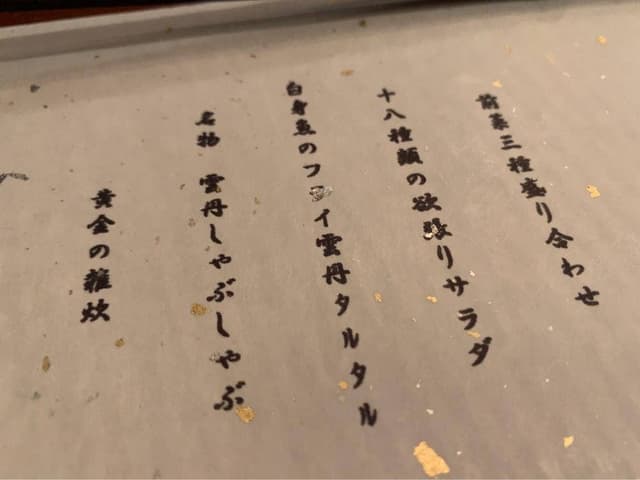 前菜三種盛り合わせ
十八種類の欲張りサラダ
白身魚のフライ雲丹タルタル
名物 雲丹しゃぶしゃぶ
黄金の雑炊